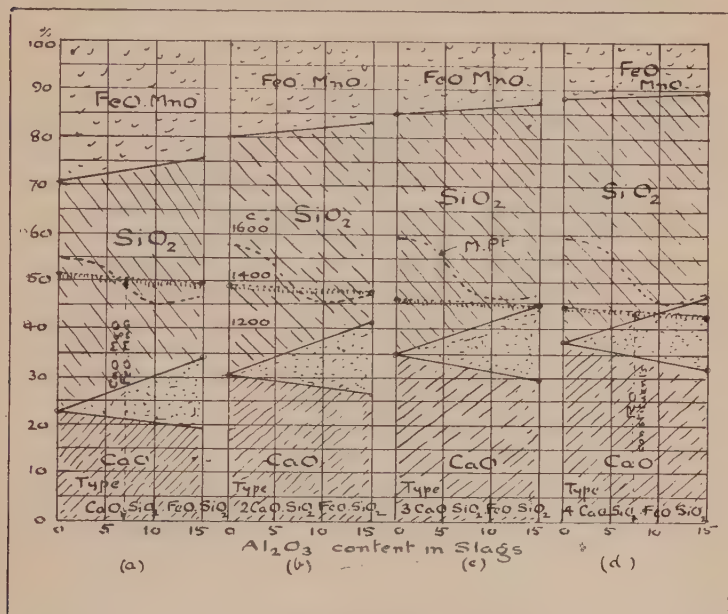 %
100
90
80
70
60
50
40
30
20
10
0
FeO. MnO
SiO2
CaO MgO
FeO. MnO
CaO
Type
CaO SiO2 FeO SiO2
0 5 10 15
(a)
FeO. MnO
SiO2
C°
1600
1400
1200
CaO
Type
2CaO SiO2 FeO SiO2
0 5 10 15
(b)
FeO MnO
SiO2
M.Pt
CaO
Type
3 CaO SiO2 FeO SiO2
0 5 10 15
(c)
FeO
MnO
SiO2
RO
constituents
CaO
Type
4 CaO SiO2 FeO SiO2
0 5 10 15
(d)
Al2O3 content in Slags